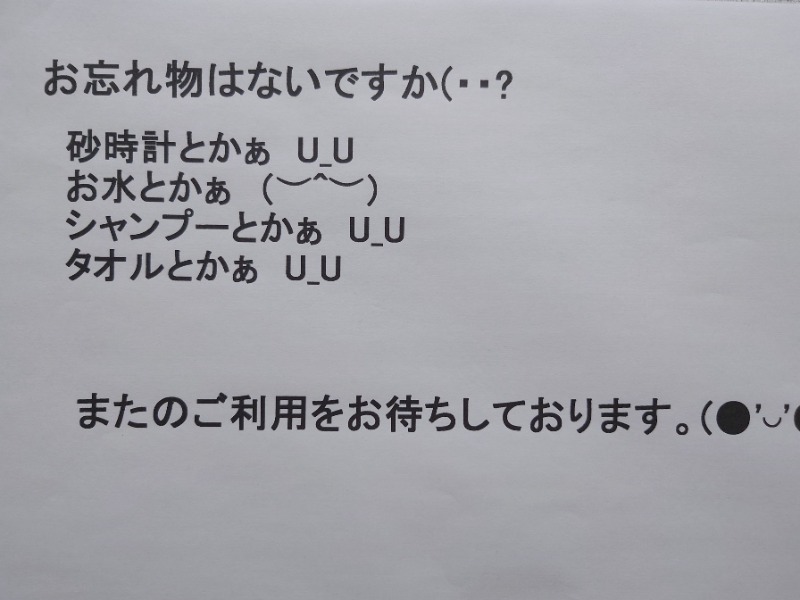 お忘れ物はないですか(・・?
砂時計とかぁ U_U
お水とかぁ (︶^︶)
シャンプーとかぁ U_U
タオルとかぁ U_U
またのご利用をお待ちしております。(●’◡’●